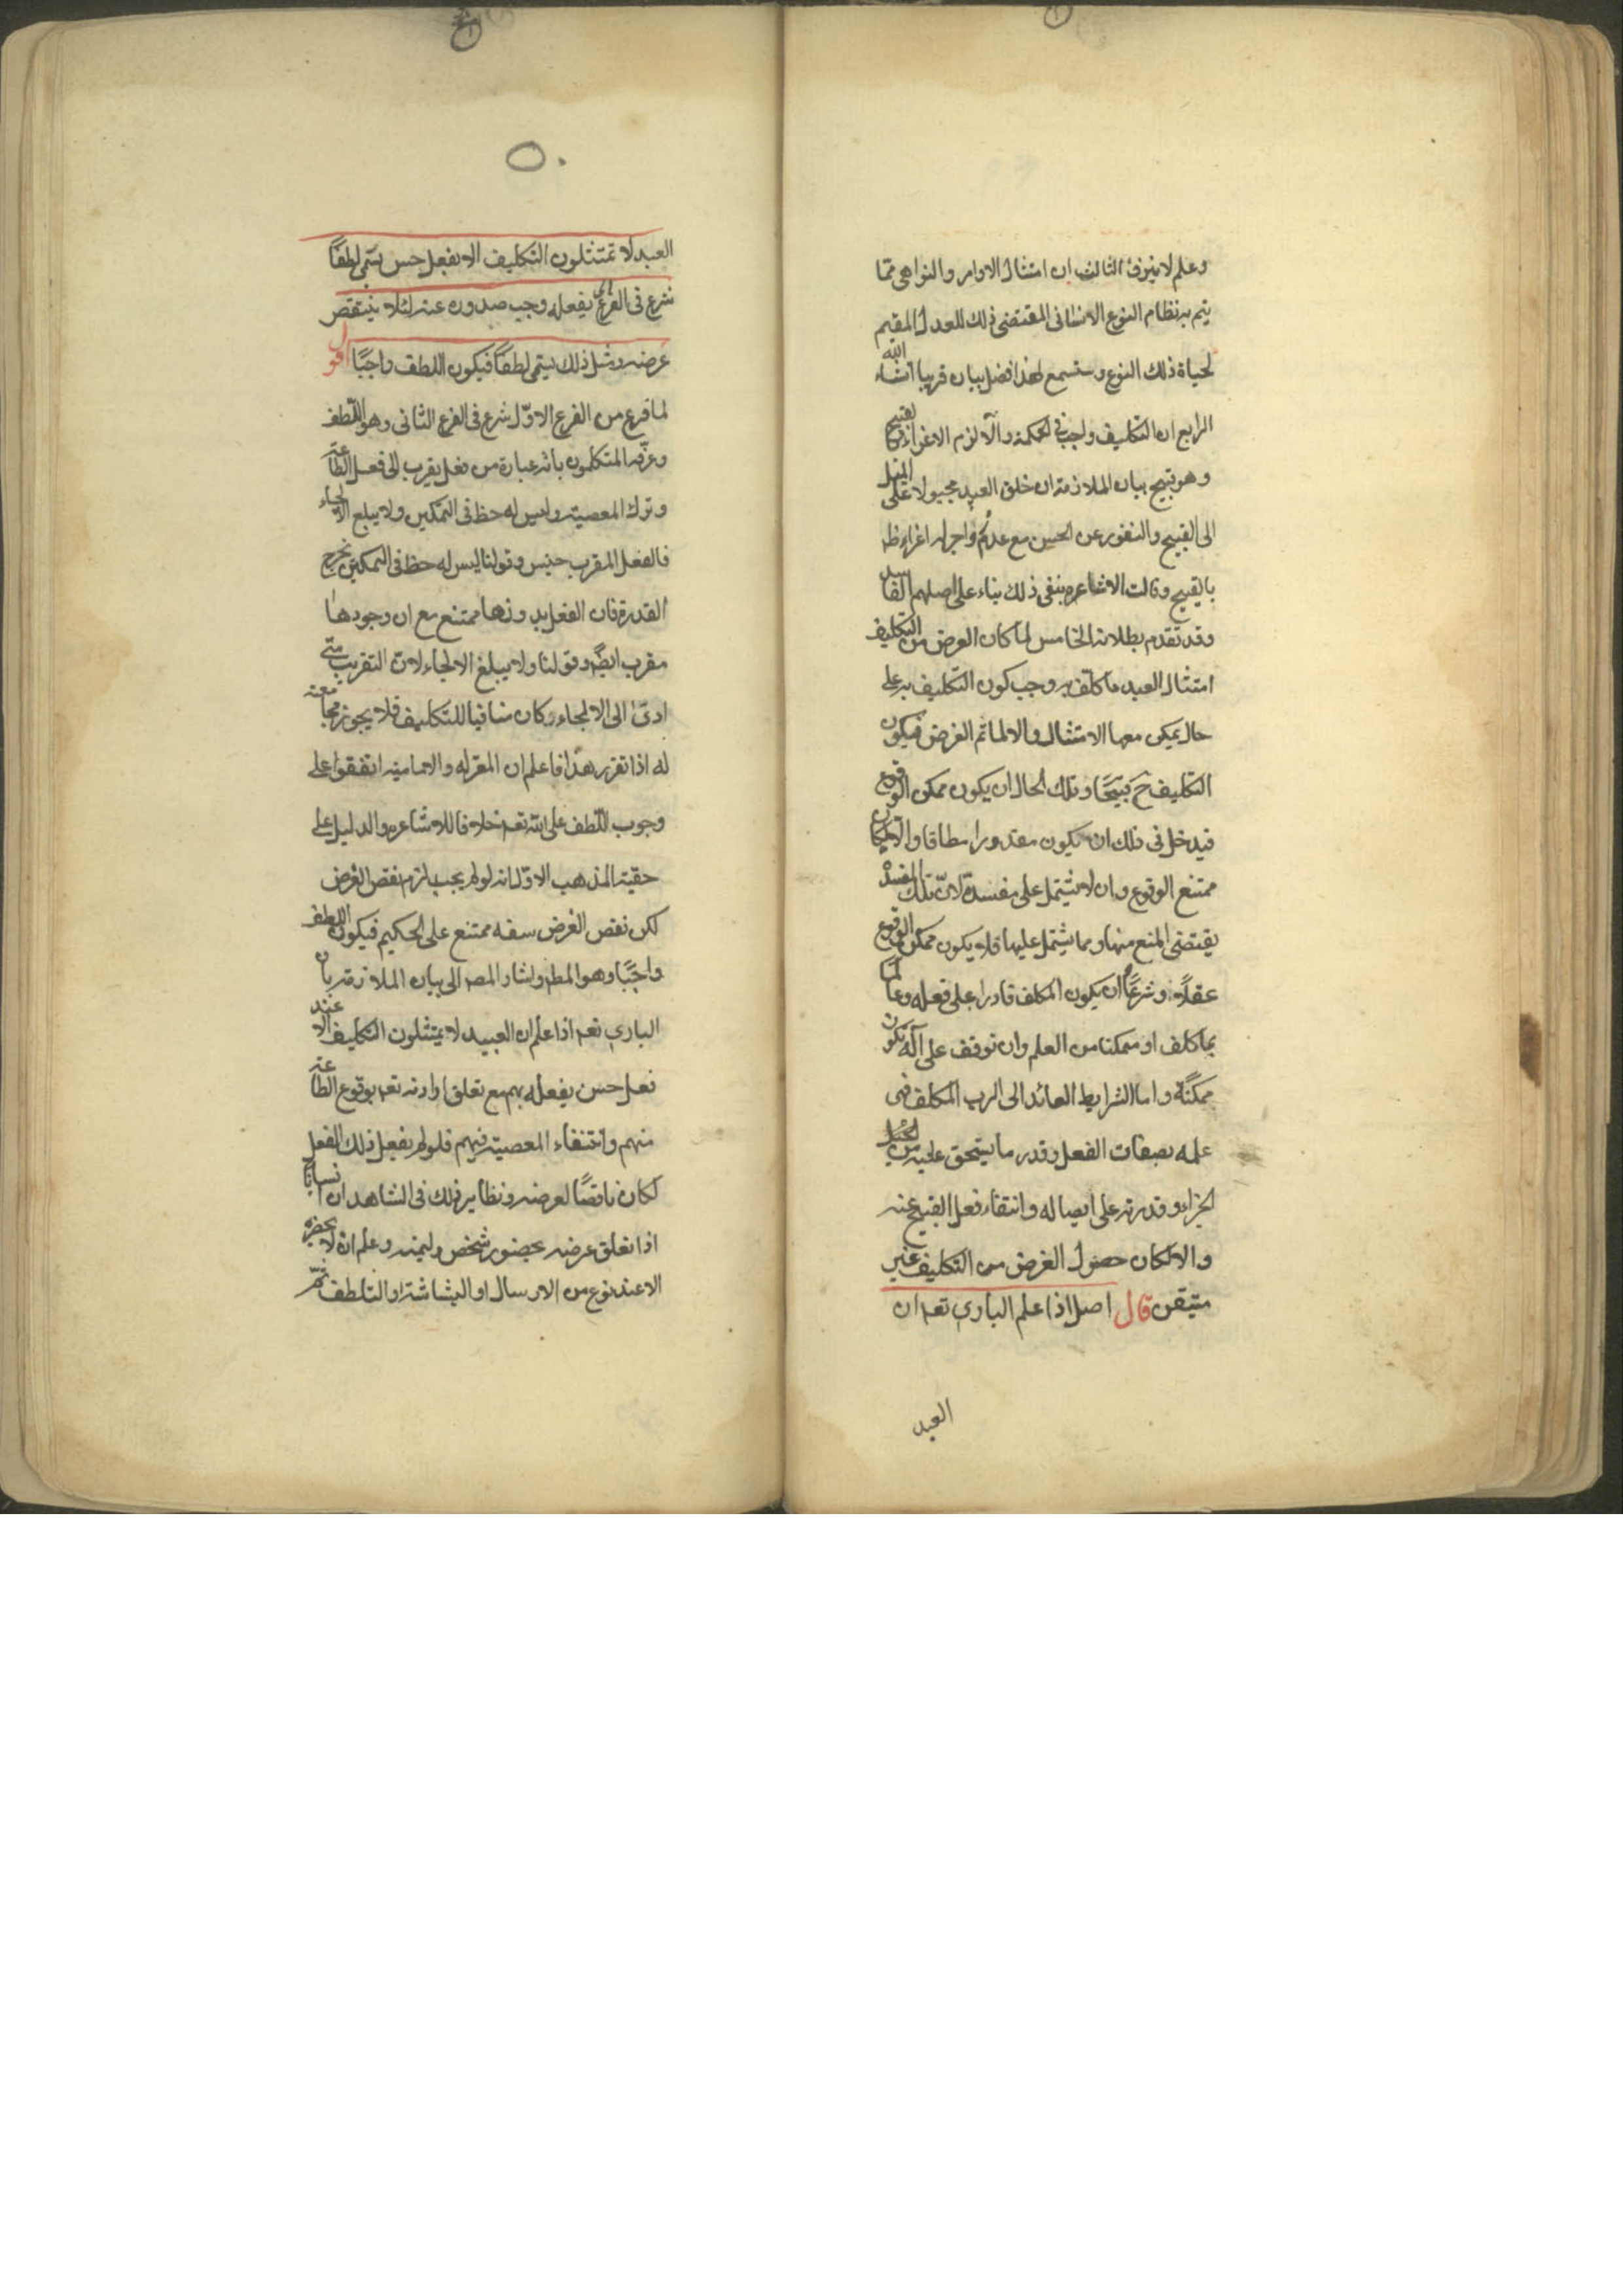 وعلم لا ينزف الثالث ان امتثال الاوامر والنواهى مما
يتم به نظام النوع الانسانى المقتضى ذلك للعدل المقيم
لحياة ذلك النوع وستسمع لهذا فضل بيان قريبا انشاء الله
الرابع ان التكليف واجب فى الحكمة والا لزم الاغراء بالقبيح
وهو قبيح بيان الملازمة ان خلق العبيد مجبولا على الميل
الى القبيح والنفور عن الحسن مع عدم اغراء له
بالقبيح وقالت الاشاعرة بنفى ذلك بناء على اصلهم الفاسد
وقد تقدم بطلانه الخامس لما كان الغرض من التكليف
امتثال العبيد ما كلف به وجب كون التكليف به على
حال يمكن معها الامتثال والا لما تم الغرض فيكون
التكليف ح قبيحًا وتلك الحال ان يكون ممكن الوقوع
فيدخل فى ذلك ان يكون مقدورا مطاقا والا لكان
ممتنع الوقوع وان لا يشتمل على مفسدة لان تلك المفسدة
يقتضى المنع منها ومما يشتمل عليها فلا يكون ممكن الوقوع
عقلاً وشرعًا وان يكون المكلف قادرا على فعله وعالما
بما كلف او متمكنا من العلم وان توقف على آلة تكون
ممكنة واما الشرايط العائد الى الرب المكلف فهى
علمه بصفات الفعل وقدر ما يستحق عليه من
الجزاء وقدرته على ايصاله وانتفاء فعل القبيح عنه
والا لكان حصول الغرض من التكليف غير
متيقن قال اصل اذا علم البارى تعم ان
العبد
٥٠
العبد لا تمتثلون التكليف الا بفعل حسن يسمى لطفًا
شرع فى الفرع يفعله وجب صدوره عنه لئلا ينتقض
غرضه ومثل ذلك يسمى لطفًا فيكون اللطف واجبًا اقول
لما فرغ من الفرع الاوّل شرع فى الفرع الثانى وهو اللّطف
وعرّفه المتكلمون بانه عبارة من فعل يقرب الى فعل الطاعة
وترك المعصية وليس له حظ فى التمكين ولا يبلغ الالجاء
فالفعل المقرب جنس وقولنا ليس له حظ فى التمكين يخرج
القدرة فان الفعل بدونها ممتنع مع ان وجودها
مقرب ايضً وقولنا ولا يبلغ الالجاء لان التقريب متى
ادى الى الالجاء وكان منافيا للتكليف فلا يجوز مجامعته
له اذا تقرر هذا فاعلم ان المعتزله والاماميه اتفقوا على
وجوب اللّطف على الله تعم خلافا للاشاعره والدليل على
حقية المذهب الاوّل انه لو لم يجب لزم نقض الغرض
لكن نقض الغرض سفه ممتنع على الحكيم فيكون اللطف
واجبًا وهو المط واشار المصر الى بيان الملازمة بان
البارى تعم اذا علم ان العبيد لا يمتثلون التكليف الا عند
فعل حسن يفعله بهم مع تعلق ارادته تعم بوقوع الطاعة
منهم وانتفاء المعصية فيهم فلو لم يفعل ذلك الفعل
لكان ناقضًا لغرضه ونظاير ذلك فى الشاهد ان انسانا
اذا تعلق غرضه بحضور شخص وليمته وعلم انه لا يحضره
الا عند نوع من الارسال او البشاشة او التلطف ثمّ